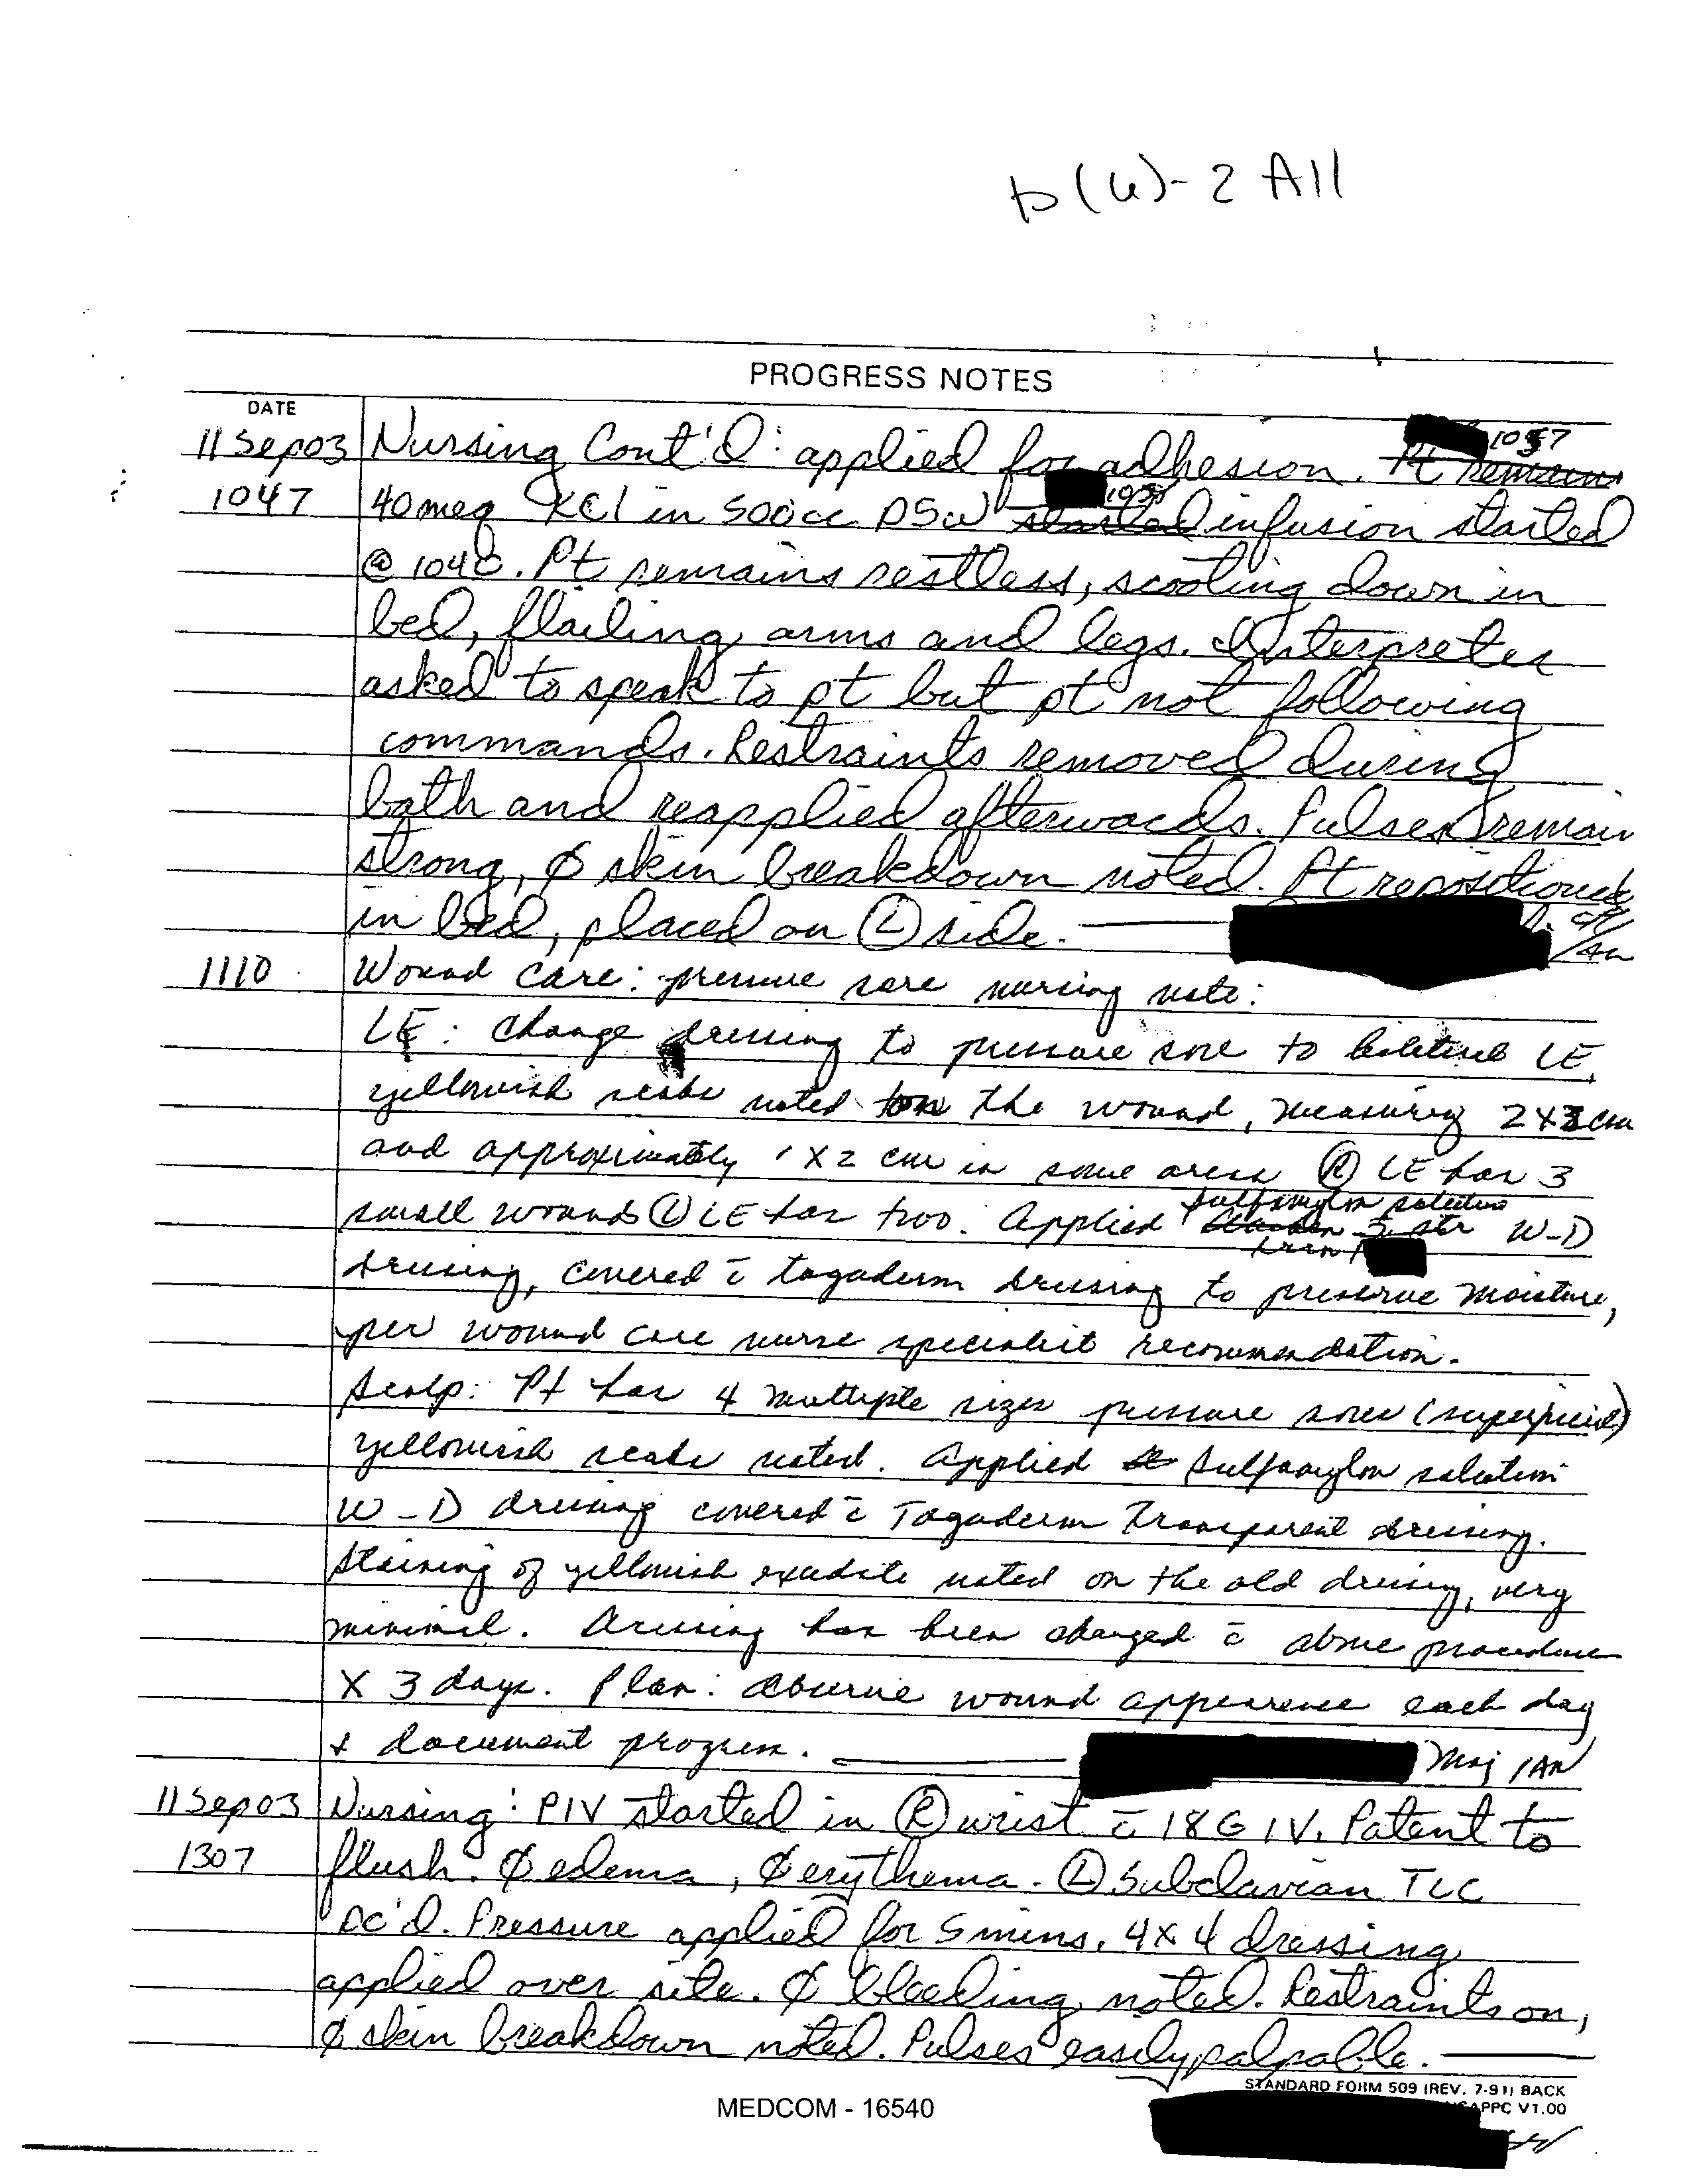 b(6)-2 All
PROGRESS NOTES
DATE
11 Sep 03 Nursing Cont'd: applied for adhesion. Pt remains 1057
1047 40 meq KCl in 500cc D5W started infusion started
@ 1040. Pt remains restless, scooting down in
bed, flailing arms and legs. Interpreter
asked to speak to pt but pt not following
commands. Restraints removed during
bath and reapplied afterwards. Pulses remain
strong, ∅ skin breakdown noted. Pt repositioned
in bed, placed on Ⓛ side.
1110 Wound care: pressure sore nursing note:
LE: Change dressing to pressure sore to bilateral LE,
yellowish scabs noted on the wound, measuring 2x3cm
and approximately 1x2 cm in some areas Ⓡ LE has 3
small wounds Ⓛ LE has two. Applied sulfamylon solution W-D
dressing, covered c̄ tagaderm dressing to preserve moisture,
per wound care nurse specialist recommendation.
Scalp: Pt has 4 multiple sizes pressure sores (superficial)
yellowish scabs noted. Applied Sulfamylon solution
W-D dressing covered c̄ Tagaderm Transparent dressing.
Staining of yellowish exudate noted on the old dressing, very
minimal. Dressing has been changed c̄ above procedure
x 3 days. Plan: observe wound appearence each day
+ document progress. Maj /AN
11 Sep 03 Nursing: PIV started in Ⓡ wrist c̄ 18G IV. Patent to
1307 flush. ∅ edema, ∅ erythema. Ⓛ Subclavian TLC
DC'd. Pressure applied for 5 mins. 4x4 dressing
applied over site. ∅ bleeding noted. Restraints on,
∅ skin breakdown noted. Pulses easily palpable.
STANDARD FORM 509 (REV. 7-91) BACK
APPC V1.00
MEDCOM - 16540